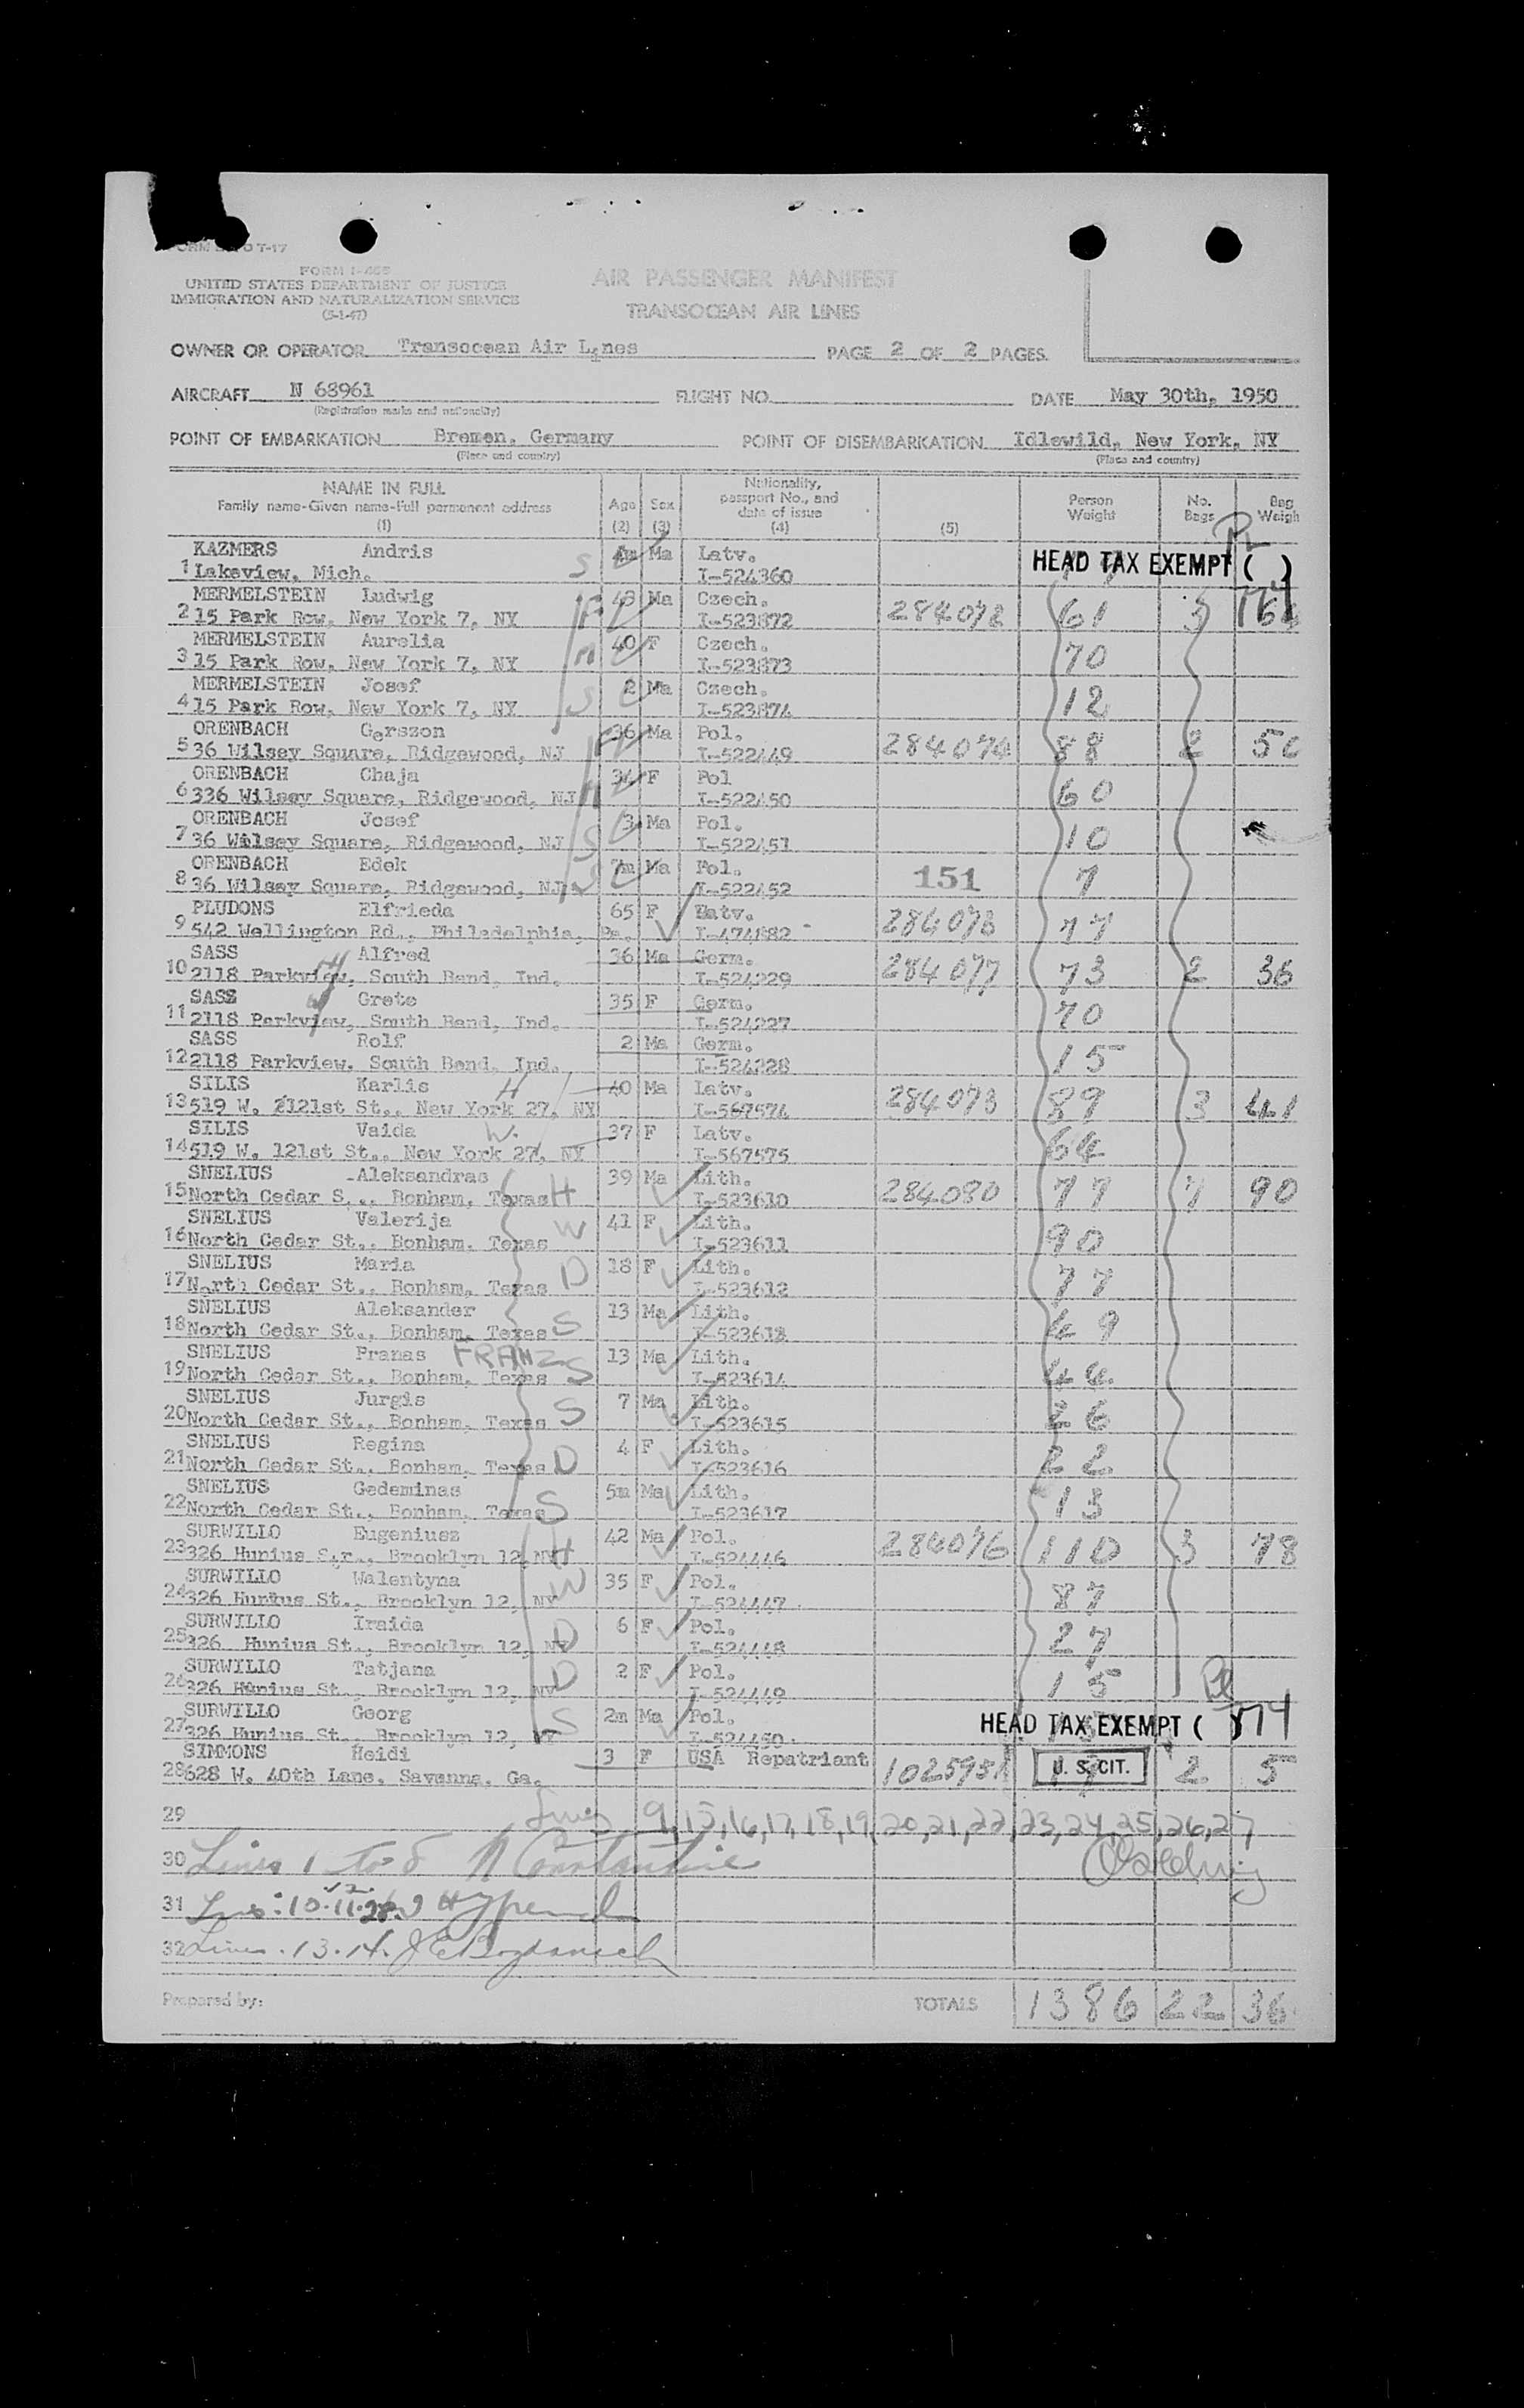 FORM I-466
UNITED STATES DEPARTMENT OF JUSTICE
IMMIGRATION AND NATURALIZATION SERVICE
(5-1-47)
AIR PASSENGER MANIFEST
TRANSOCEAN AIR LINES
OWNER OR OPERATOR Transocean Air Lines PAGE 2 OF 2 PAGES
AIRCRAFT N 68961 FLIGHT NO. DATE May 30th, 1950
(Registration marks and nationality)
POINT OF EMBARKATION Bremen, Germany POINT OF DISEMBARKATION Idlewild, New York, NY
(Place and country) (Place and country)
NAME IN FULL
Family name-Given name-Full permanent address
(1)
Age (2) Sex (3)
Nationality, passport No., and date of issue (4)
(5)
Person Weight
No. Bags
Bag Weigh
KAZMERS Andris Ma Latv. HEAD TAX EXEMPT ( )
1 Lakeview, Mich. S I-524360
MERMELSTEIN Ludwig 43 Ma Czech.
2 15 Park Row, New York 7, NY I-523872 61 3
MERMELSTEIN Aurelia 40 F Czech.
3 15 Park Row, New York 7, NY I-523873 70
MERMELSTEIN Josef 2 Ma Czech.
4 15 Park Row, New York 7, NY S I-523874 12
ORENBACH Gerszon 36 Ma Pol.
5 36 Wilsey Square, Ridgewood, NJ I-522449 284074 88 2
ORENBACH Chaja F Pol
6 336 Wilsey Square, Ridgewood, NJ I-522450 60
ORENBACH Josef 3 Ma Pol.
7 36 Wilsey Square, Ridgewood, NJ S I-522451 10
ORENBACH Edek 7m Ma Pol.
8 36 Wilsey Square, Ridgewood, NJ S I-522452 151 7
PLUDONS Elfrieda 65 F Latv.
9 542 Wellington Rd., Philadelphia, Pa. I-474882 284073 77
SASS Alfred 36 Ma Germ.
10 2118 Parkview, South Bend, Ind. H I-524229 284077 73 2 36
SASS Grete 35 F Germ.
11 2118 Parkview, South Bend, Ind. I-524227 70
SASS Rolf 2 Ma Germ.
12 2118 Parkview, South Bend, Ind. I-524228 15
SILIS Karlis H 40 Ma Latv.
13 519 W. 2121st St., New York 27, NY I-567574 284073 89 3 41
SILIS Vaida W. 37 F Latv.
14 519 W. 121st St., New York 27, NY I-567575 64
SNELIUS Aleksandras 39 Ma Lith.
15 North Cedar S,., Bonham, Texas H I-523610 284080 77 7 90
SNELIUS Valerija 41 F Lith.
16 North Cedar St., Bonham, Texas W I-523611 90
SNELIUS Maria 18 F Lith.
17 North Cedar St., Bonham, Texas D I-523612 77
SNELIUS Aleksander 13 Ma Lith.
18 North Cedar St., Bonham, Texas S I-523613 49
SNELIUS Pranas FRANZ 13 Ma Lith.
19 North Cedar St., Bonham, Texas S I-523614 44
SNELIUS Jurgis 7 Ma Lith.
20 North Cedar St., Bonham, Texas S I-523615 26
SNELIUS Regina 4 F Lith.
21 North Cedar St., Bonham, Texas D I-523616 22
SNELIUS Gedeminas 5m Ma Lith.
22 North Cedar St., Bonham, Texas S I-523617 13
SURWILLO Eugeniusz 42 Ma Pol.
23 326 Hunius S,r., Brooklyn 12, NY H I-524446 284076 110 3 78
SURWILLO Walentyna 35 F Pol.
24 326 Hunius St., Brooklyn 12, NY W I-524447 87
SURWILLO Iraida 6 F Pol.
25 326 Hunius St., Brooklyn 12, NY D I-524448 27
SURWILLO Tatjana 2 F Pol.
26 326 Hunius St., Brooklyn 12, NY D I-524449 15
SURWILLO Georg 2m Ma Pol. HEAD TAX EXEMPT ( 174
27 326 Hunius St., Brooklyn 12, NY S I-524450
SIMMONS Heidi 3 F USA Repatriant
28 628 W. 40th Lane, Savanna, Ga. U. S. CIT. 2 5
29 Lines 9, 15, 16, 17, 18, 19, 20, 21, 22, 23, 24, 25, 26, 27
30 Lines 1 to 8
31
32 Lines. 13. 14.
Prepared by: TOTALS 1386 22 36